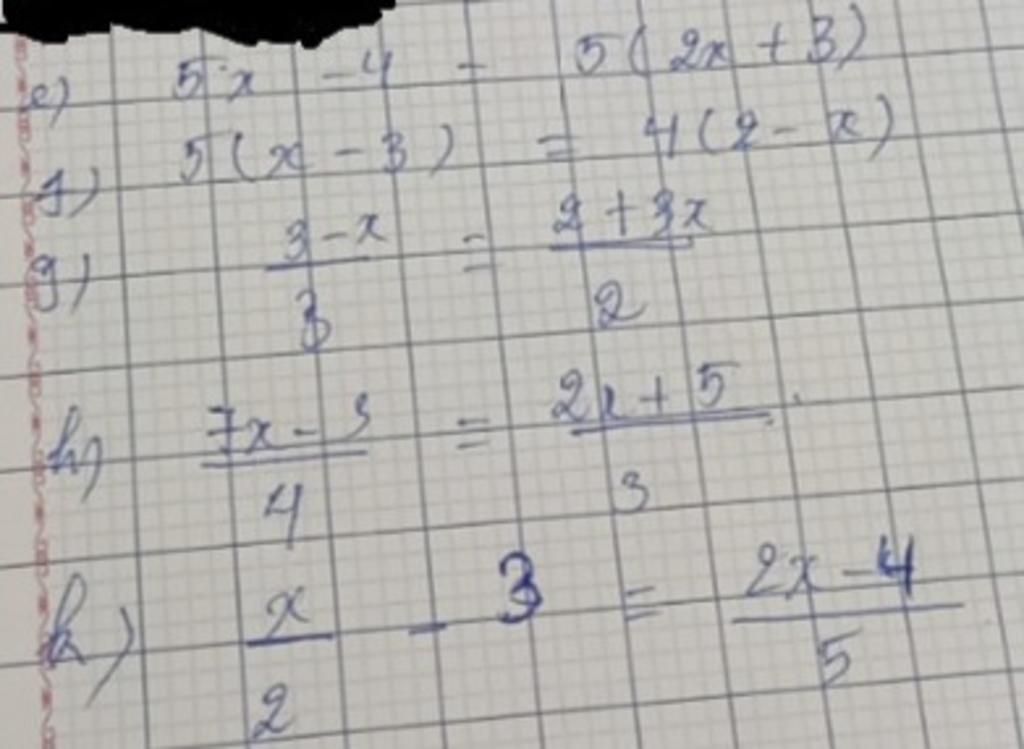 e) 5x - 4 - 5(2x + 3)
f) 5(x - 3) = 4(2 - x)
g) \frac{3 - x}{3} = \frac{2 + 3x}{2}
h) \frac{7x - 3}{4} = \frac{2x + 5}{3}
k) \frac{x}{2} - 3 = \frac{2x - 4}{5}